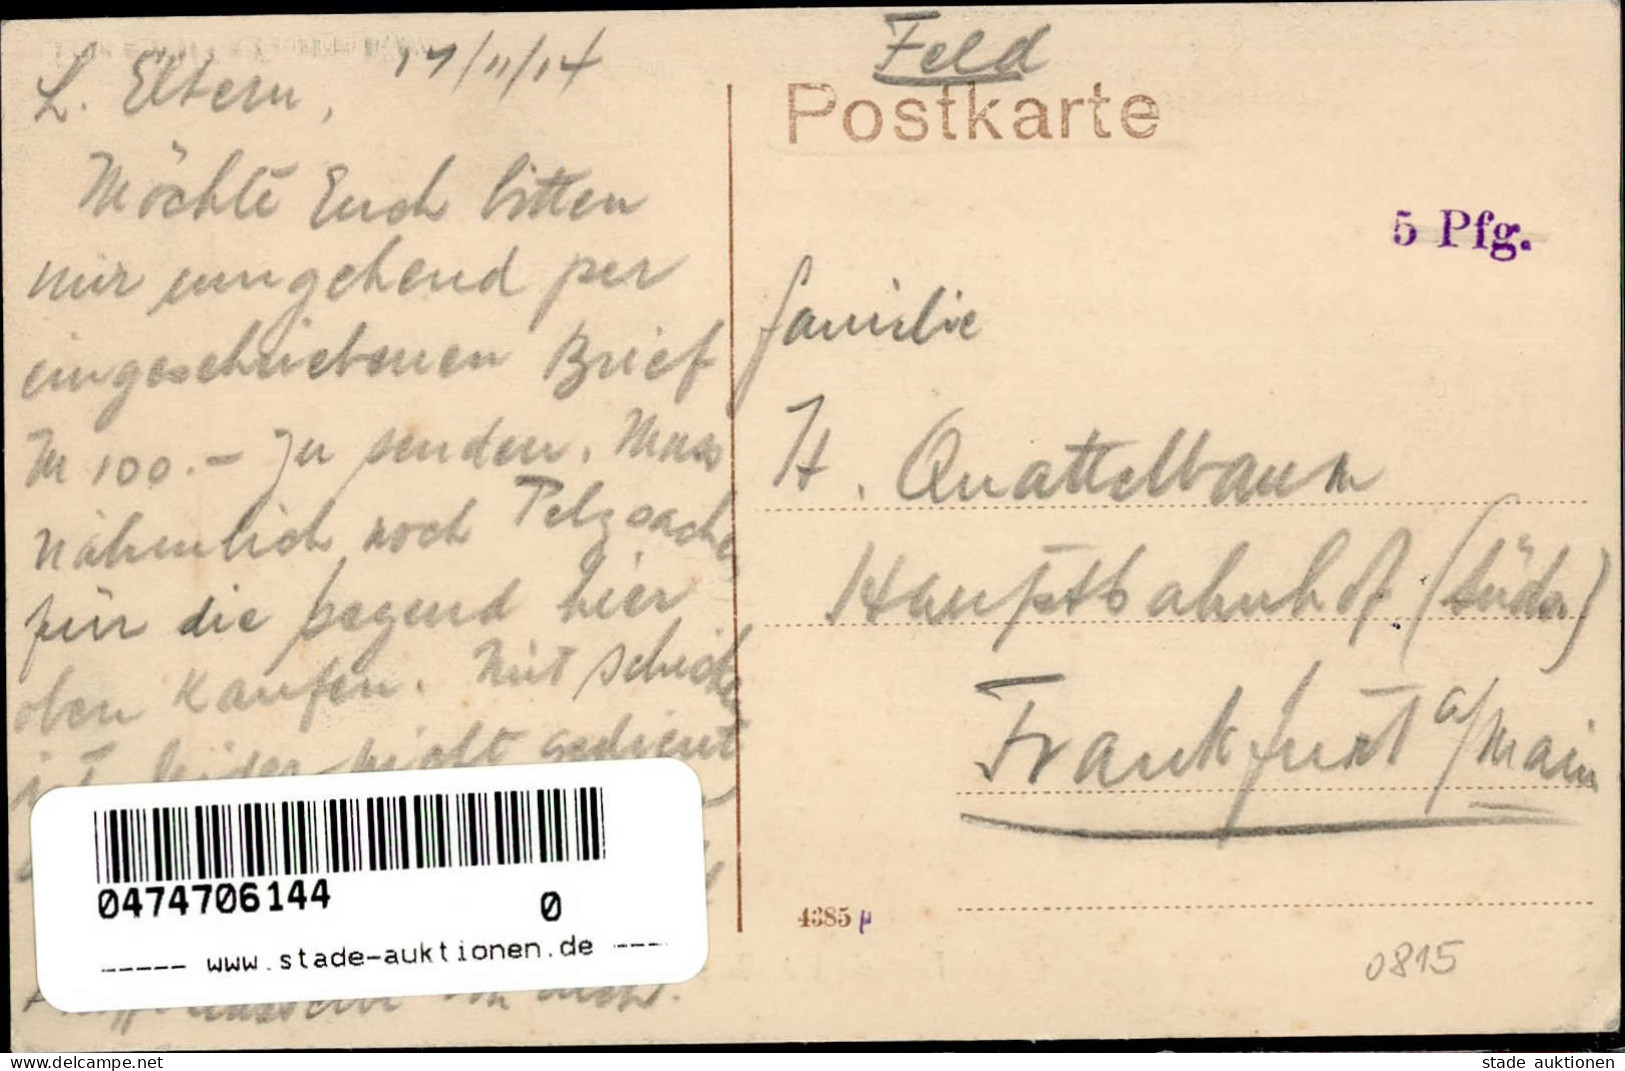 L. Eltern, 17/11/14
Möchte Euch bitten
mir umgehend per
eingeschriebenen Brief
M 100.- zu senden. Muss
nähmlich noch Pelzsache
für die Gegend hier
oben kaufen. Mit schicke
ist leider nicht gedient
Feld
Postkarte
5 Pfg.
Familie
H. Quattelbaum
Hauptbahnhof (Süden)
Frankfurt a/Main
4385
0815
0474706144 0
----- www.stade-auktionen.de ----
delcampe.net
stade auktionen